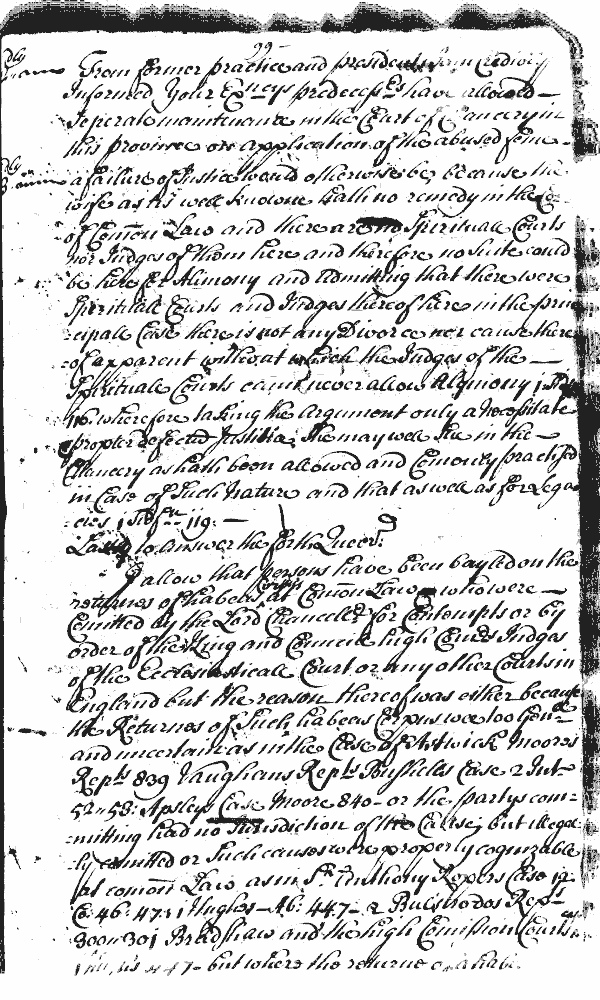 99-
From former practice and presidents I am Credibly
Informed your Ex:neys predecessrs have allowed
Seperate maintenance in the Court of Chancery in
this province on application of the abused feme
a failure of Justice would otherwise be, because the
wife as is well knowne hath no remedy in the Co
of Comon Law and there are no Spirituall Courts
nor Judges of them here and therefore no Suite could
be here for Alimony and admitting that there were
Spirituall Courts and Judges thereof here in the prin
=cipale Case there is not any Divorce nor cause there
=of apparent without which the Judges of the
Spirituale Courts cannot never allow Alymony
16: wherefore taking the argument only a necessitate
propter defectu Justitia, She may well Sue in the
Chancery as hath been allowed and Comonly practised
in Case of Such nature and that as well as for Lega
=cies 119:
Lastly to answer the forth Queer:
I allow that persons have been bayled on the
returnes of habeas Corpus at Comon Law who were
Comitted by the Lord Chancellr for Contempts or by
order of the King and Councill high Comrs Judges
of the Ecclesiasticall Court or any other Courts in
England but the reason thereof was either because
the Returnes of Such habeas Corpus were too Genll
and uncertain as in the Case of Astwick Moores
Repts 839 Vaughans Repts Bushells Case 2 Inst
52-53: Apsleys Case Moore 840- or the partys com=
=mitting had no Jurisdiction of the Cause, but illegal
=ly comitted or Such causes were properly cognizable
at comon Law as in Sr Anthony Ropers Case 12
Co: 46: 47: 1 Hughes Ab: 447- 2 Bulstrodes Repts
300 & 301 Bradshaw and the high Comission Courts
but where the returne